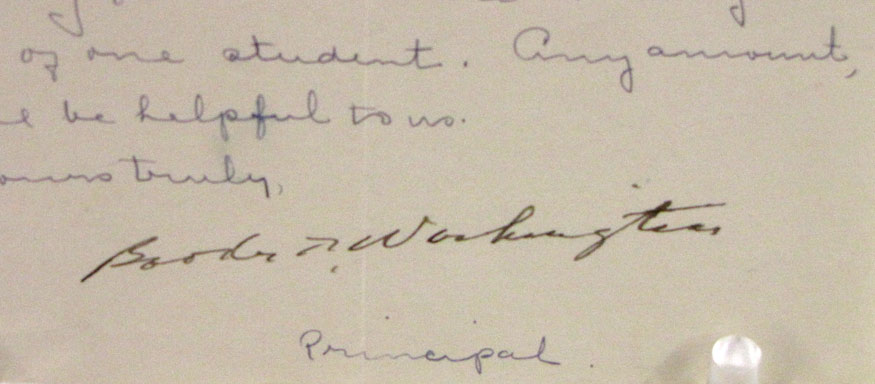 of one student. Any amount,
be helpful to us.
yours truly,
Booker T. Washington
Principal.